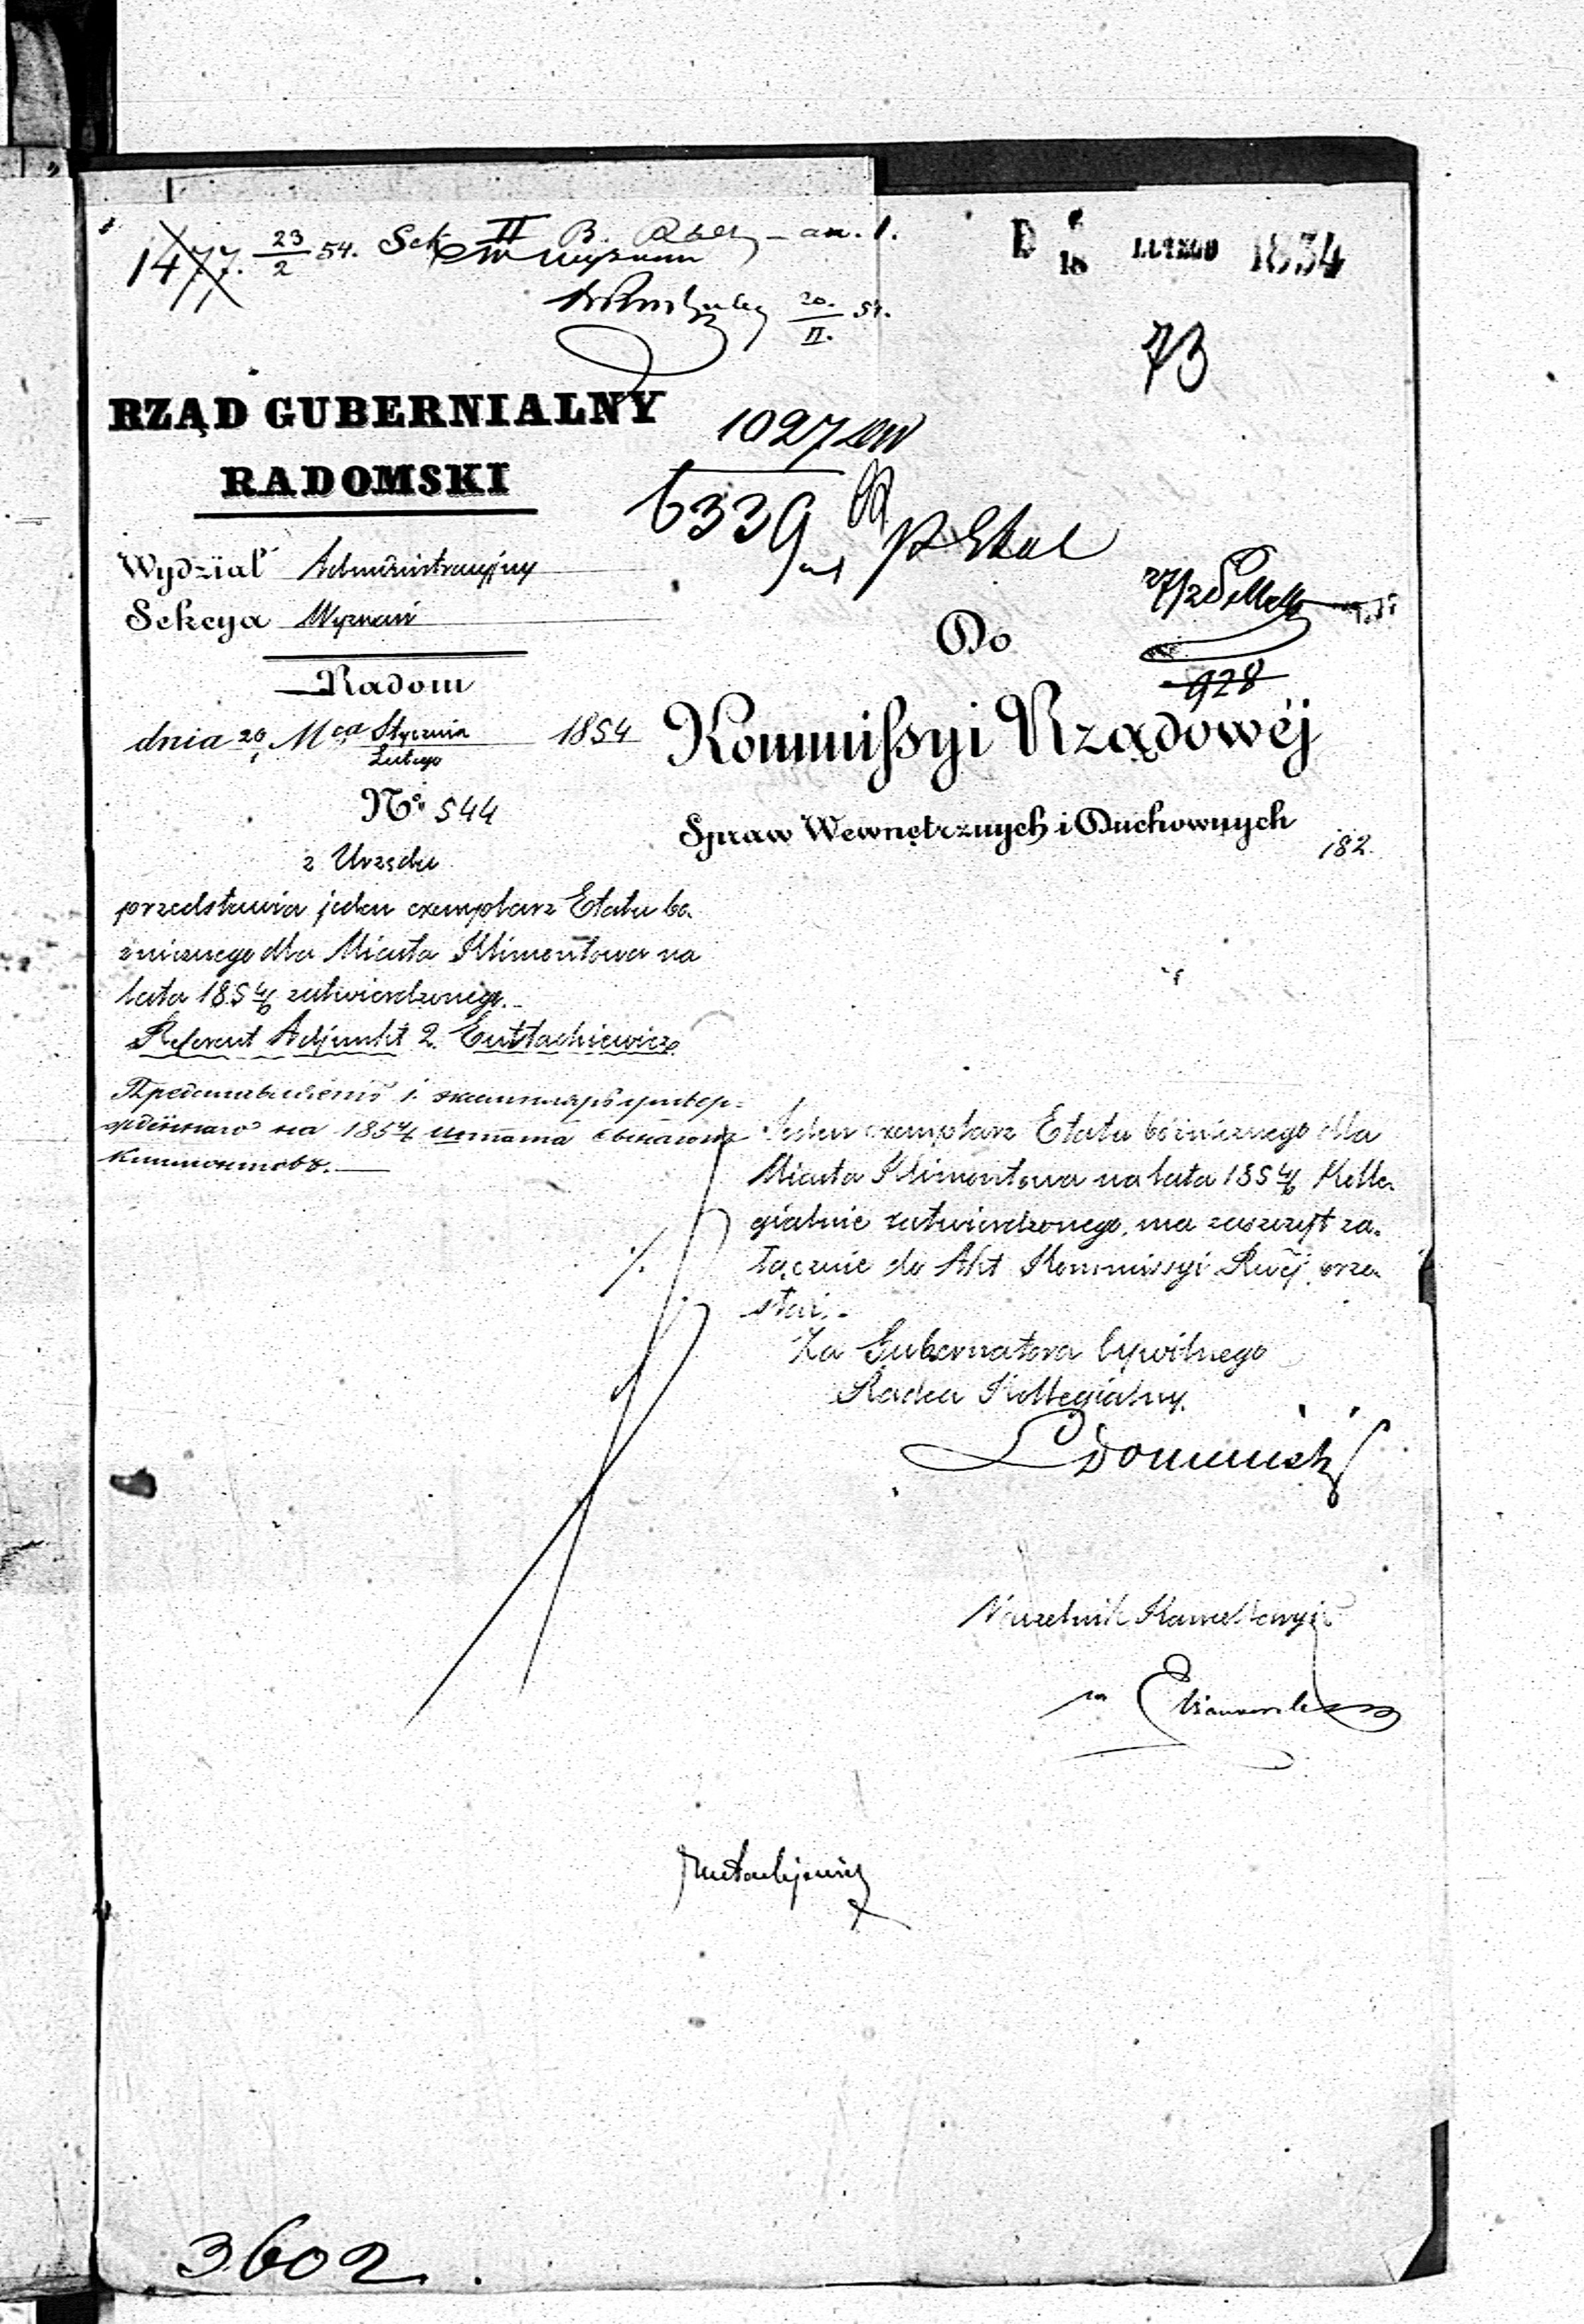 1477. 23/2 54. Sek II B.
20./II. 54.
D 6/18 LUTEGO 1854
73
RZĄD GUBERNIALNY
RADOMSKI
1027
6339
Wydział Administracyjny
Sekcya Wyznań
Radom
dnia 20 Mca Stycznia/Lutego 1854
No. 544
z Urzędu
przedstawia jeden exemplarz Etatu bo-
zniczego dla Miasta Klimontowa na
lata 1854/6 zatwierdzonego.
Referent Adjunkt 2. Eustachiewicz
928
Do
Kommissyi Rządowéj
Spraw Wewnętrznych i Duchownych
182.
на 1854/6
Jeden exemplarz Etatu bożniczego dla
Miasta Klimontowa na lata 1854/6 Kolle-
gialnie zatwierdzonego, ma zaszczyt za-
łącznie do Akt Kommissyi Rwéj prze-
słać.
Za Gubernatora Cywilnego
Radca Kollegialny.
Naczelnik Kancellaryi
3602.